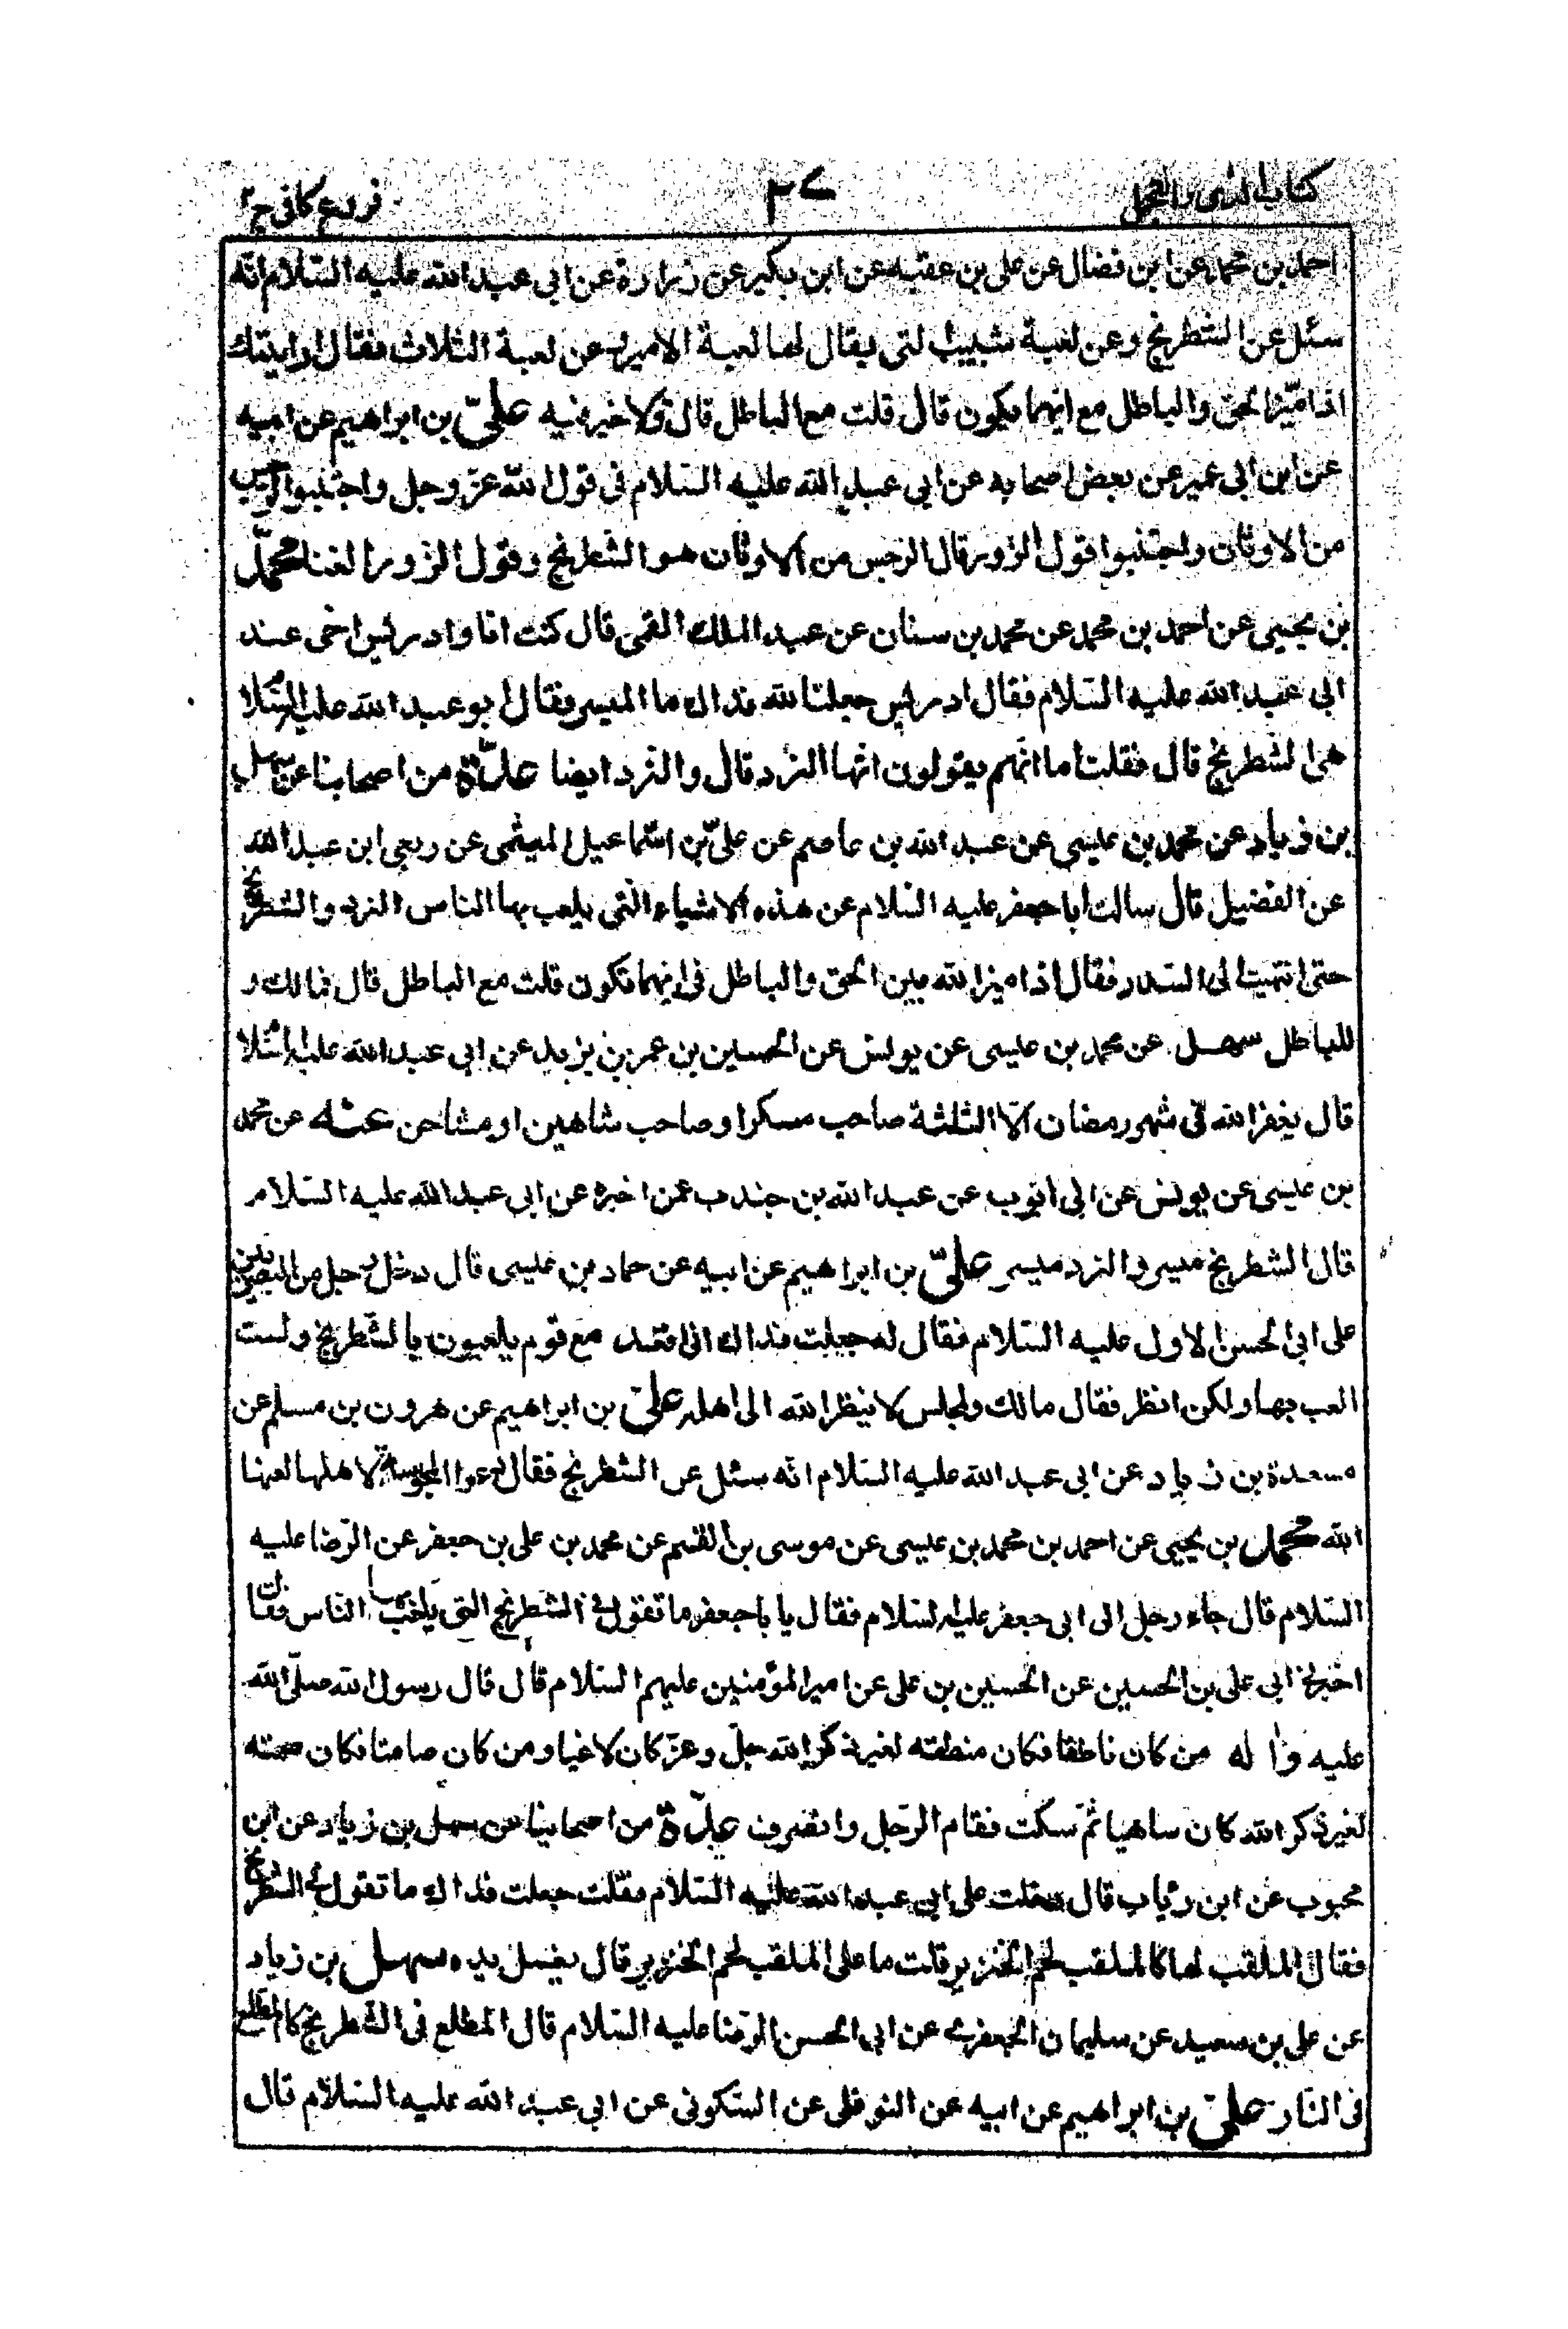 كتاب الزى والتجمل ٢٠٤ فروع كافى ج٢
احمد بن محمد عن ابن فضال عن على بن عقبه عن ابن بكير عن زرارة عن ابى عبد الله عليه السّلام انّه
سئل عن الشّطرنج وعن لعبة شبيب التى يقال لها لعبة الامير وعن لعبة الثلاث فقال ارايتك
اذا ميّز الحق والباطل مع ايهما يكون قال قلت مع الباطل قال ولا خير فيه علىّ بن ابراهيم عن ابيه
عن ابن ابى عمير عن بعض اصحابه عن ابى عبد الله عليه السّلام فى قول الله عزّ وجل واجتنبوا الرّجس
من الاوثان واجتنبوا قول الزور قال الرجس من الاوثان هو الشّطرنج وقول الزور الغنا محمّد
بن يحيى عن احمد بن محمد عن محمد بن سنان عن عبد الملك القمى قال كنت انا وادريس اخى عند
ابى عبد الله عليه السّلام فقال ادريس جعلنا الله فداك ما الميسر فقال ابو عبد الله عليه السّلام
هى الشطرنج قال فقلت اما انّهم يقولون انّها النرد قال والنرد ايضا عدّة من اصحابنا عن سهل
بن زياد عن محمد بن عيسى عن عبد الله بن عاصم عن علىّ بن اسّماعيل الميثمى عن ربعى ابن عبد الله
عن الفضيل قال سالت ابا جعفر عليه السّلام عن هذه الاشياء التى يلعب بها الناس النرد والشطرنج
حتى انتهيت الى السّدر فقال اذا ميز الله بين الحق والباطل فى ايهما تكون قلت مع الباطل قال فما لك و
للباطل سهل عن محمد بن عيسى عن يونس عن الحسين بن عمر بن يزيد عن ابى عبد الله عليه السّلام
قال يغفر الله فى شهر رمضان الّا الثلثة صاحب مسكر او صاحب شاهين او مشاحن عنه عن محمد
بن عيسى عن يونس عن ابى ايّوب عن عبد الله بن جندب عمن اخبره عن ابى عبد الله عليه السّلام
قال الشطرنج ميسر والنرد ميسر علىّ بن ابراهيم عن ابيه عن حماد بن عيسى قال دخل رجل من البصريين
على ابى الحسن الاول عليه السّلام فقال له جعلت فداك انى اقعد مع قوم يلعبون بالشّطرنج ولست
العب بها ولكن انظر فقال مالك ولمجلس لا ينظر الله الى اهله علىّ بن ابراهيم عن هرون بن مسلم عن
مسعدة بن زياد عن ابى عبد الله عليه السّلام انّه سئل عن الشّطرنج فقال دعوا المجوسيّة لاهلها لعنها
الله محمّد بن يحيى عن احمد بن محمد بن عيسى عن موسى بن القسم عن محمد بن على بن جعفر عن الرّضا عليه
السّلام قال جاء رجل الى ابى جعفر عليه السّلام فقال يا با جعفر ما تقول فى الشّطرنج التى يلعب بها النّاس فقال
اخبرنى ابى على بن الحسين عن الحسين بن على عن امير المؤمنين عليهم السّلام قال قال رسول الله صلّى الله
عليه واٰله من كان ناطقا فكان منطقه لغير ذكر الله جلّ وعزّ كان لاغيا ومن كان صامتا فكان صمته
لغير ذكر الله كان ساهيا ثمّ سكت فقام الرّجل وانصرف عدّة من اصحابنا عن سهل بن زياد عن ابن
محبوب عن ابن رئاب قال دخلت على ابى عبد الله عليه السّلام فقلت جعلت فداك ما تقول فى الشّطرنج
فقال المقلّب لها كالمقلب لحم الخنزير قلت ما على المقلب لحم الخنزير قال يغسل يده سهل بن زياد
عن على بن سعيد عن سليمان الجعفرى عن ابى الحسن الرّضا عليه السّلام قال المطلع فى الشّطرنج كالمطلع
فى النّار علىّ بن ابراهيم عن ابيه عن النوفلى عن السّكونى عن ابى عبد الله عليه السّلام قال